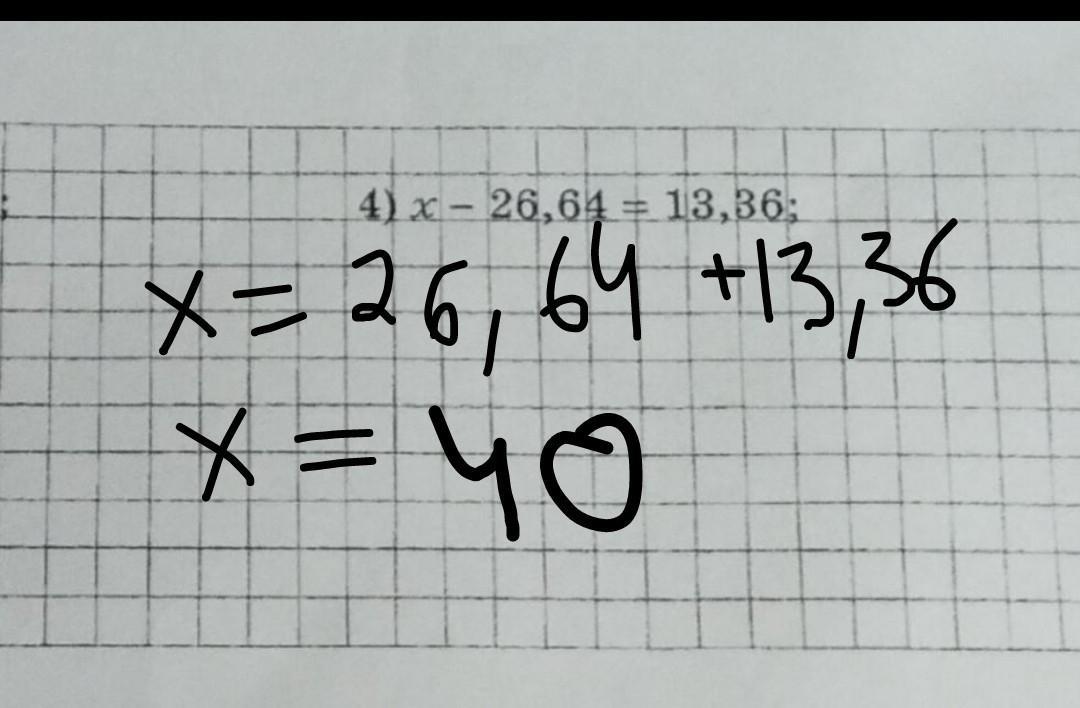 ;
4) x − 26,64 = 13,36;
x = 26,64 + 13,36
x = 40